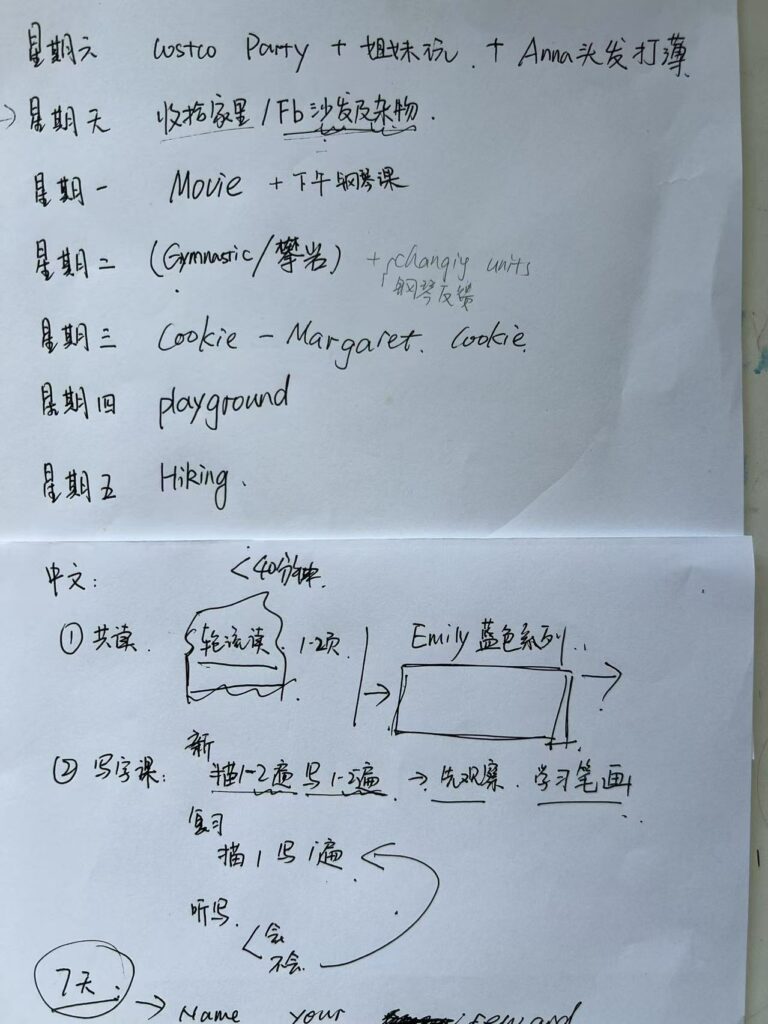 星期六 Costco Party + 姐妹玩 + Anna头发打薄
星期天 收拾家里/Fb沙发及杂物.
星期一 Movie + 下午钢琴课
星期二 (Gymnastic/攀岩) + changig units
钢琴反馈
星期三 Cookie - Margaret. Cookie.
星期四 playground
星期五 Hiking.
中文: <40分钟
① 共读. 轮流读. 1-2页. Emily 蓝色系列..
新
② 写字课: 描1-2遍 写1-2遍 → 先观察. 学习笔画
复习
描1 写1遍
听写.
会
不会
7天. → Name your